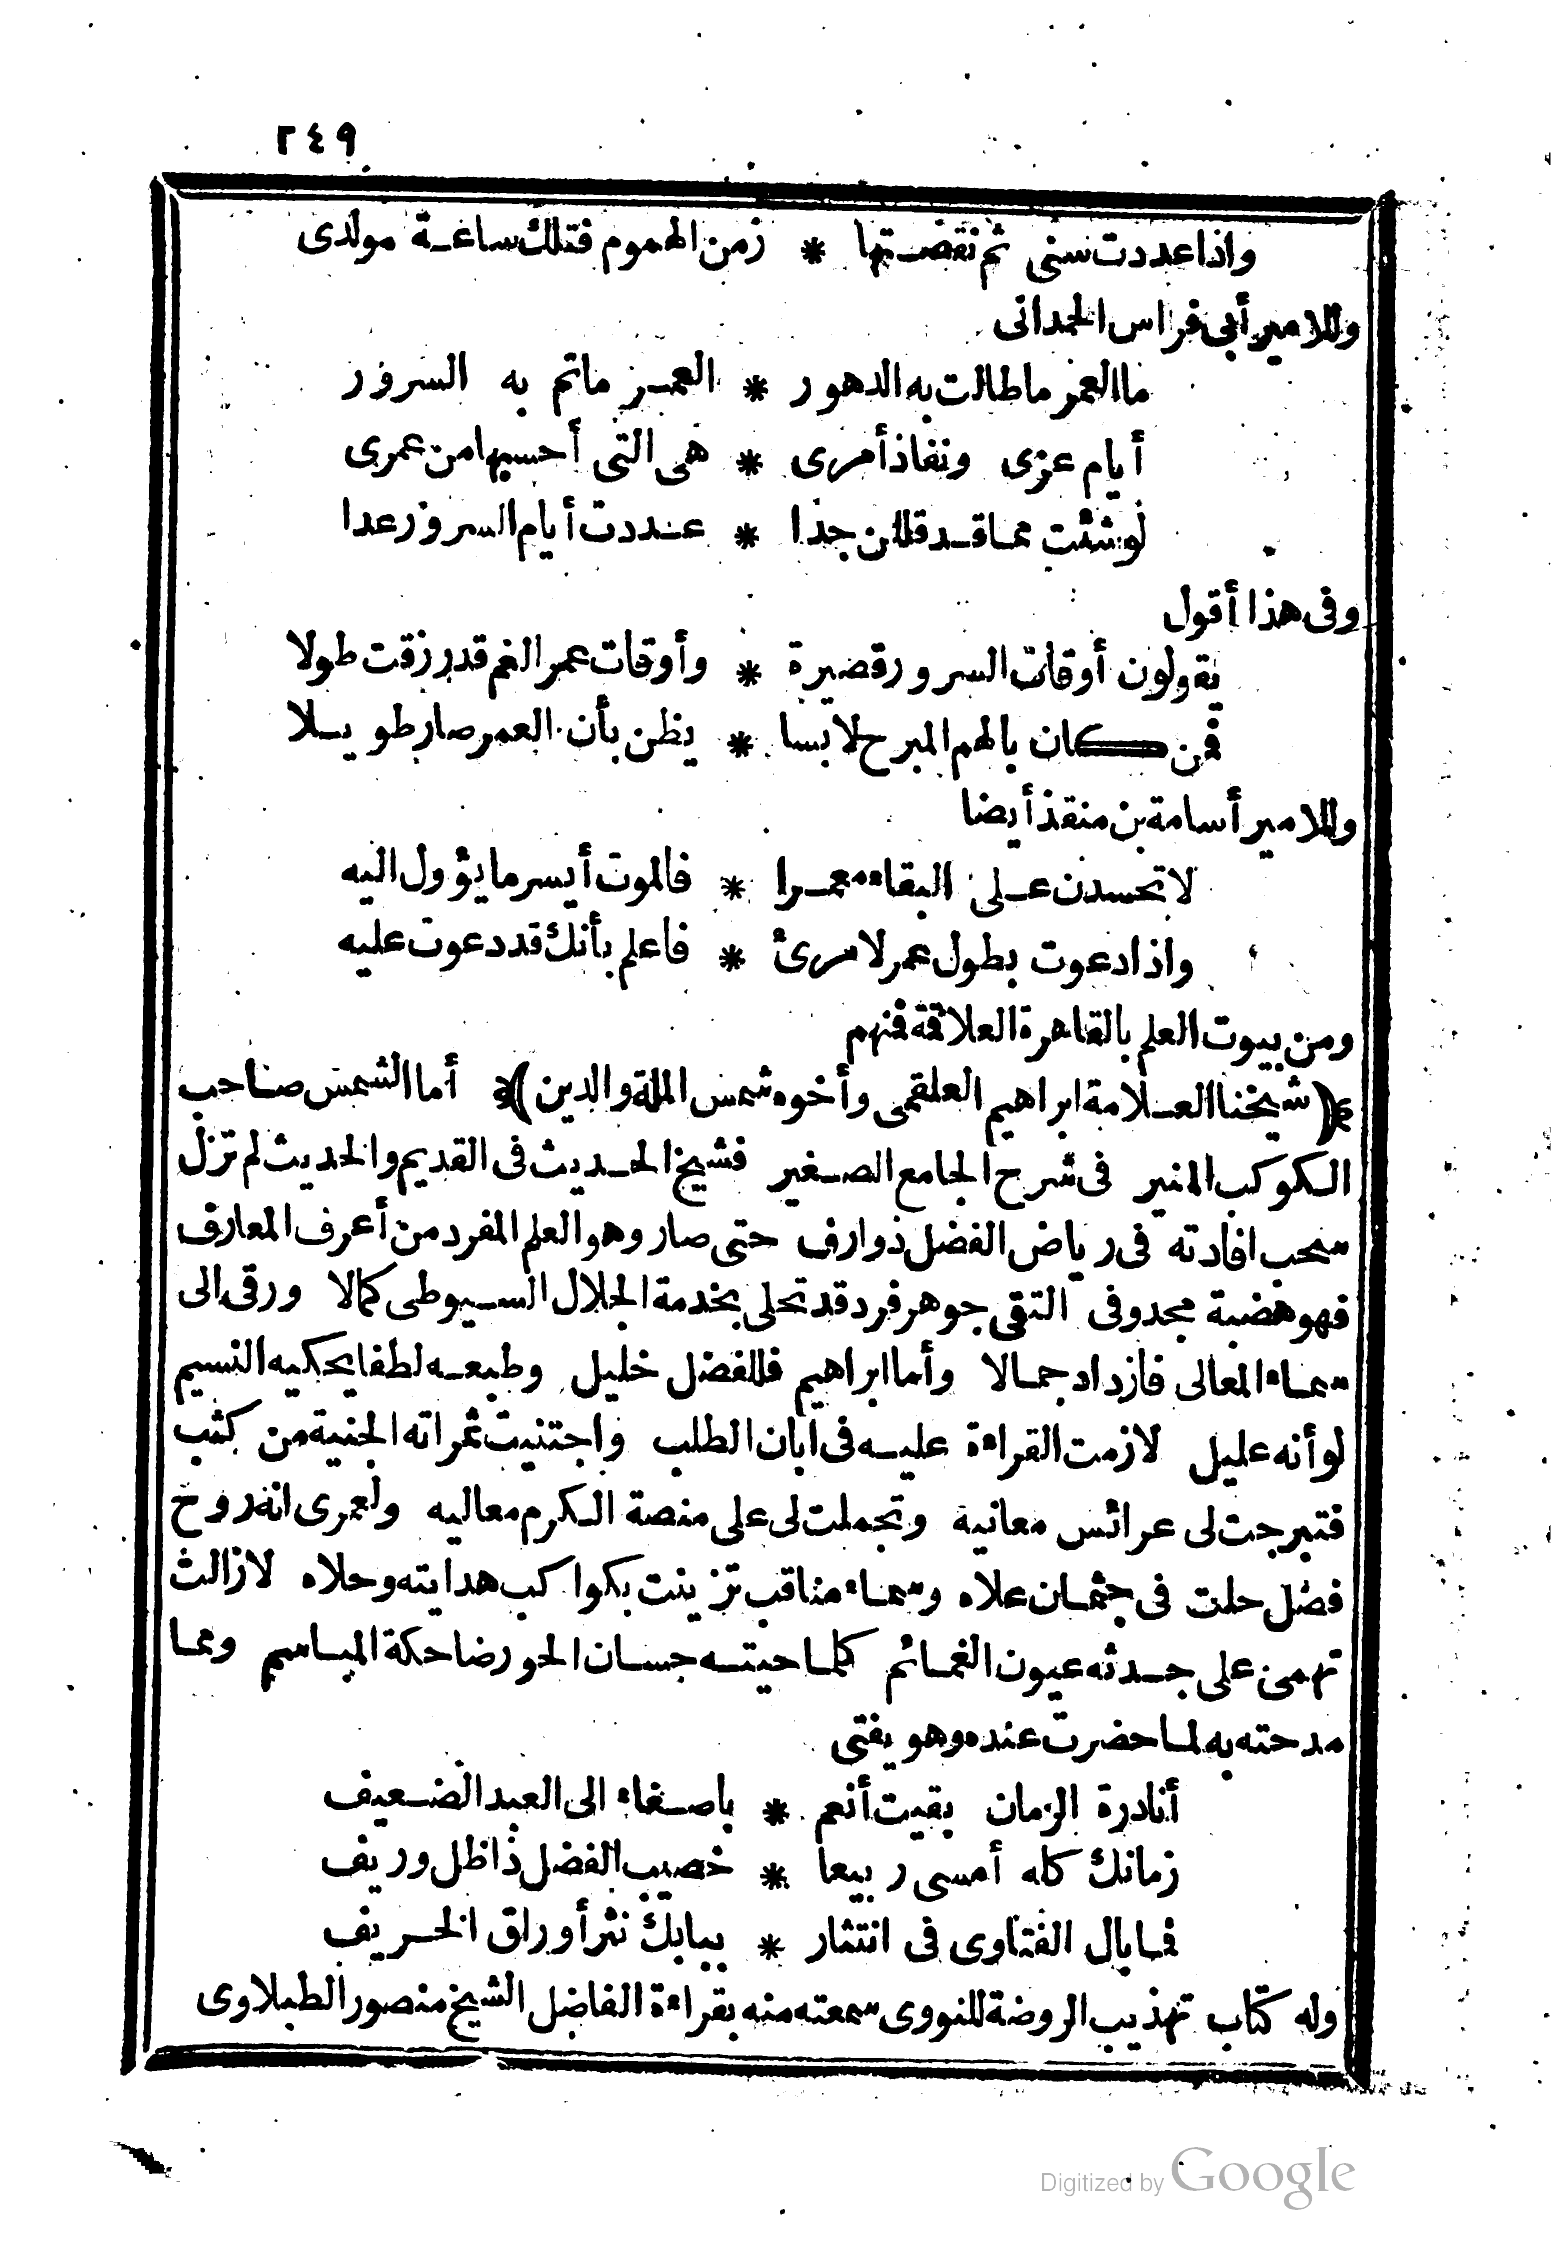 ٢٤٩
واذا عددت سنى ثم نقضتها * زمن الهموم فتلك ساعة مولدى
وللامير أبى فراس الحمدانى
ما العمر ما طالت به الدهور * العمر ماتم به السرور
أيام عزى ونفاذ أمرى * هى التى أحسبها من عمرى
لو شئت مما قد قللن جدا * عددت أيام السرور عدا
وفى هذا أقول
يقولون أوقات السرور قصيرة * وأوقات عمر الغم قد رزقت طولا
فمن كان بالهم المبرح لابسا * يظن بأن العمر صار طويلا
وللامير أسامة بن منقذ أيضا
لا تحسدن على البقاء معمرا * فالموت أيسر ما يؤول اليه
واذا دعوت بطول عمر لامرئ * فاعلم بأنك قد دعوت عليه
ومن بيوت العلم بالقاهرة العلاقة فمنهم
﴿شيخنا العلامة ابراهيم العلقمى وأخوه شمس الملة والدين﴾ أما الشمس صاحب
الكوكب المنير فى شرح الجامع الصغير فشيخ الحديث فى القديم والحديث لم تزل
سحب افادته فى رياض الفضل ذوارف حتى صار وهو العلم المفرد من أعرف المعارف
فهو هضبة مجد وفى التقى جوهر فرد قد تحلى بخدمة الجلال السيوطى كمالا ورقى الى
سماء المعالى فازداد جمالا وأما ابراهيم فللفضل خليل وطبعه لطفا يحكيه النسيم
لو أنه عليل لازمت القراءة عليه فى ابان الطلب واجتنيت ثمراته الجنية من كثب
فتبرجت لى عرائس معانية وتجملت لى على منصة الكرم معاليه ولعمرى انه روح
فضل حلت فى جثمان علاه وسماء مناقب تزينت بكواكب هدايته وحلاه لا زالت
تهمى على جدثه عيون الغمائم كلما حيته حسان الحور ضاحكة المباسم ومما
مدحته به لما حضرت عنده وهو يفتى
أنادرة الزمان بقيت أنعم * باصغاء الى العبد الضعيف
زمانك كله أمسى ربيعا * خصيب الفضل ذا ظل وريف
فما بال الفتاوى فى انتثار * ببابك نثر أوراق الخريف
وله كتاب تهذيب الروضة للنووى سمعته منه بقراءة الفاضل الشيخ منصور الطبلاوى
Digitized by Google